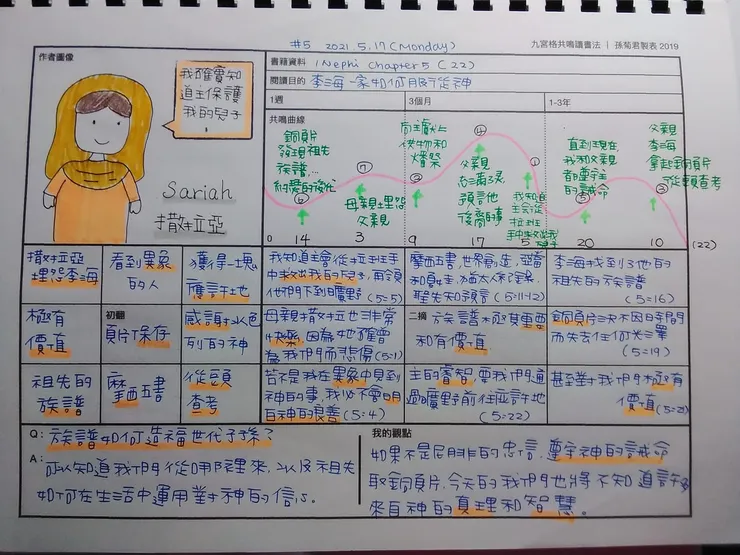 #5 2021. 5.17 (Monday)
九宮格共鳴讀書法 | 孫菊君製表 2019
作者圖像
書籍資料 1 Nephi Chapter 5 (22)
閱讀目的 李海一家如何服從神
1週 3個月 1-3年
我確實知
道主保護
我的兒子
!
Sariah
撒拉亞
共鳴曲線
銅頁片
發現祖先
族譜...
約瑟的後代
⑥
母親埋怨
父親
向主獻上
供物和
燔祭
③
父親
充滿了靈
預言他
後裔的事
①
我知道
主會從
拉班
手中救出我
兒子
直到現在,
我和父親
都遵守主
的誡命
⑤
父親
李海
拿起銅頁片
從頭查考
②
0 14 3 9 17 5 20 10 (22)
撒拉亞
埋怨李海
看到異象
的人
獲得一塊
應許地
極有
價值
初翻
頁片保存
感謝以色
列的神
祖先的
族譜
摩西五書
從頭
查考
我知道主會從拉班手
中救出我的兒子,再領
他們下到曠野 (5:5)
摩西五書,世界創造,亞當
和夏娃,猶太人紀錄,
聖先知預言 (5:11-12)
李海找到了他的
祖先的族譜
(5:16)
母親撒拉亞也非常
快樂,因為她確曾
為我們而悲傷 (5:1)
二摘 族譜極其重要
和有價值
銅頁片決不因時間
而失去任何光澤
(5:19)
若不是我在異象中見到
神的事,我必不會明
白神的良善 (5:4)
主的睿智,要我們通
過曠野前往應許地
(5:22)
甚至對我們極有
價值 (5:21)
Q: 族譜如何造福世代子孫?
A: 可以知道我們從哪裡來,以及祖先
如何在生活中運用對神的信心。
我的觀點
如果不是尼腓的忠信,遵守神的誡命
取銅頁片,今天的我們也將不知道許多
來自神的真理和智慧。